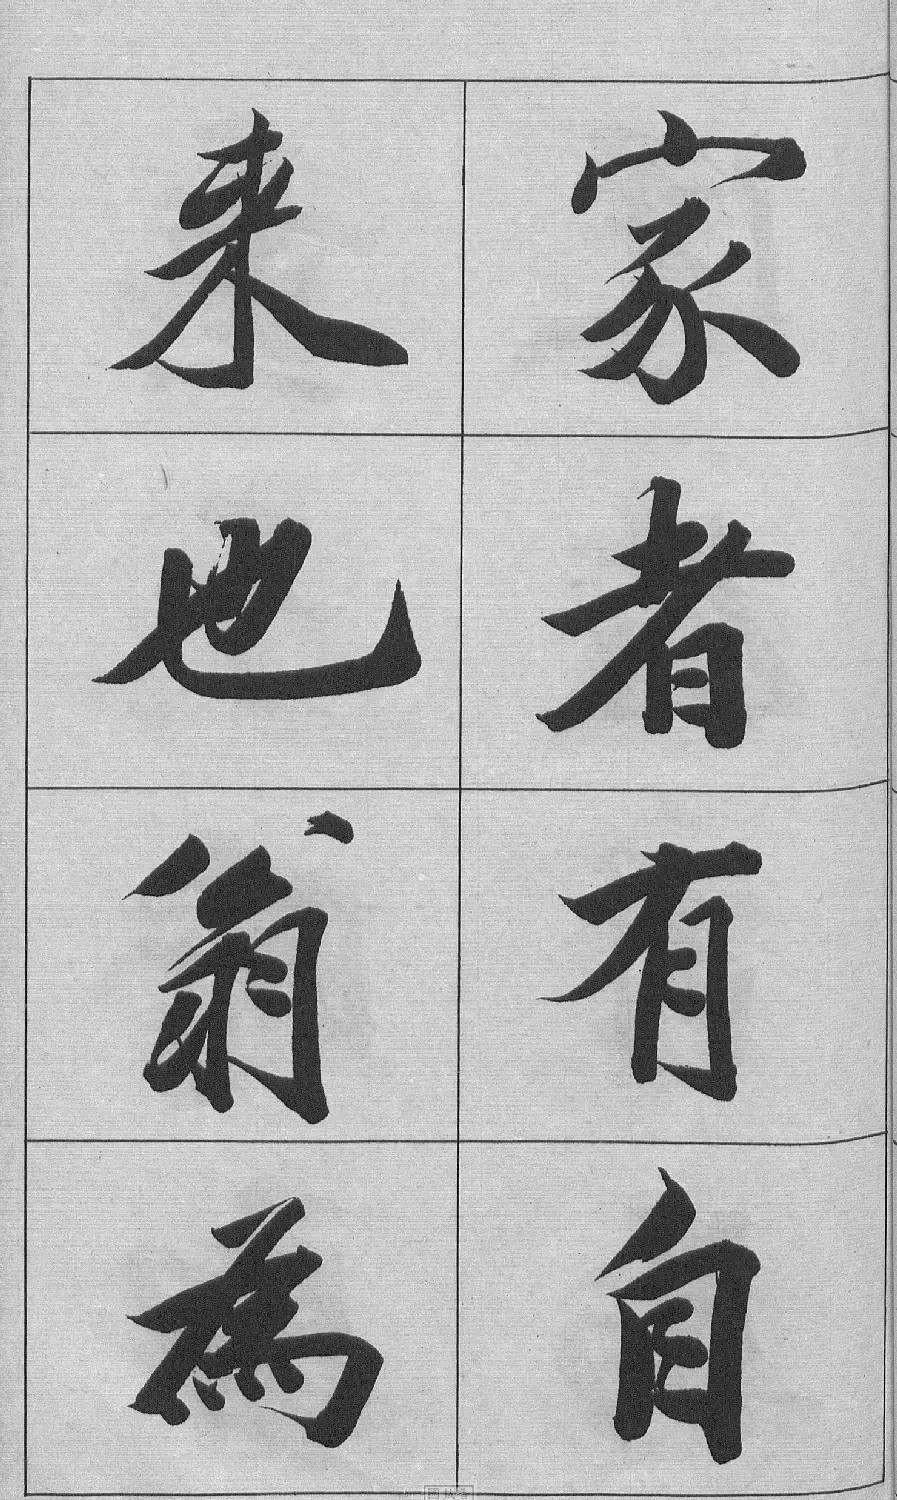 家者有自
来也翁為